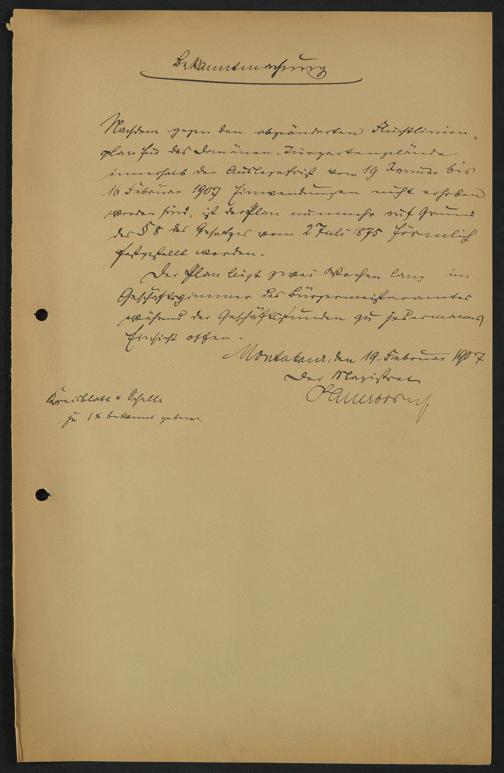 Bekanntmachung
Nachdem gegen den abgeänderten Fluchtlinien-
plan für das Domänen-Tiergartengelände
innerhalb der Auslegefrist vom 19 Januar bis
16 Februar 1907 Einwendungen nicht erhoben
worden sind, ist der Plan nunmehr auf Grund
des § 8 des Gesetzes vom 2 Juli 1875 förmlich
festgestellt worden.
Der Plan liegt zwei Wochen lang im
Geschäftszimmer des Bürgermeisteramtes
während der Geschäftsstunden zu jedermanns
Einsicht offen.
Montabaur, den 19. Februar 1907
Der Magistrat
Kreisblatt & Schelle
je 1 x bekannt geben.